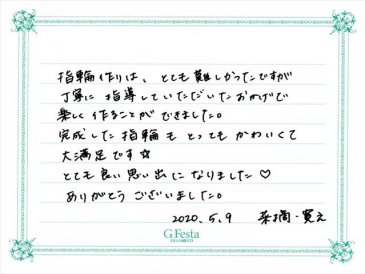 指輪作りは、とても難しかったですが
丁寧に指導していただいたおかげで
楽しく作ることができました。
完成した指輪もとってもかわいくて
大満足です☆
とても良い思い出になりました♡
ありがとうございました。
2020.5.9 菜摘・寛之
G.Festa
DIAMOND